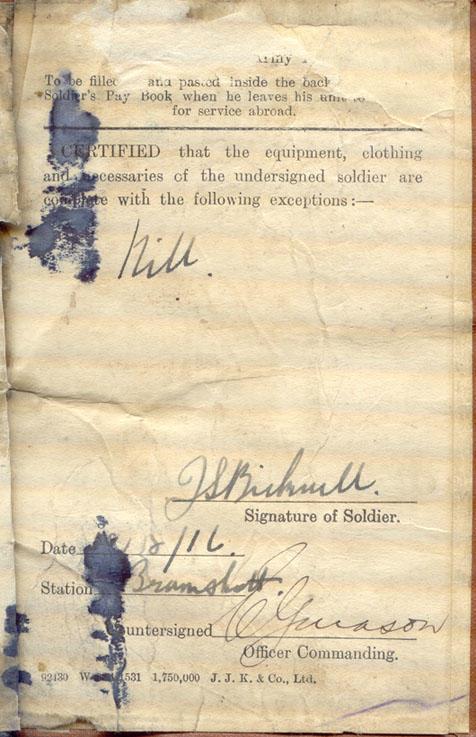 Army
To be filled and pasted inside the back
Soldier's Pay Book when he leaves his unit to
for service abroad.
CERTIFIED that the equipment, clothing
and necessaries of the undersigned soldier are
complete with the following exceptions:—
Nill.
JSBicknell.
Signature of Soldier.
Date /16.
Station Bramshott.
Countersigned
Officer Commanding.
92430 W 1531 1,750,000 J. J. K. & Co., Ltd.